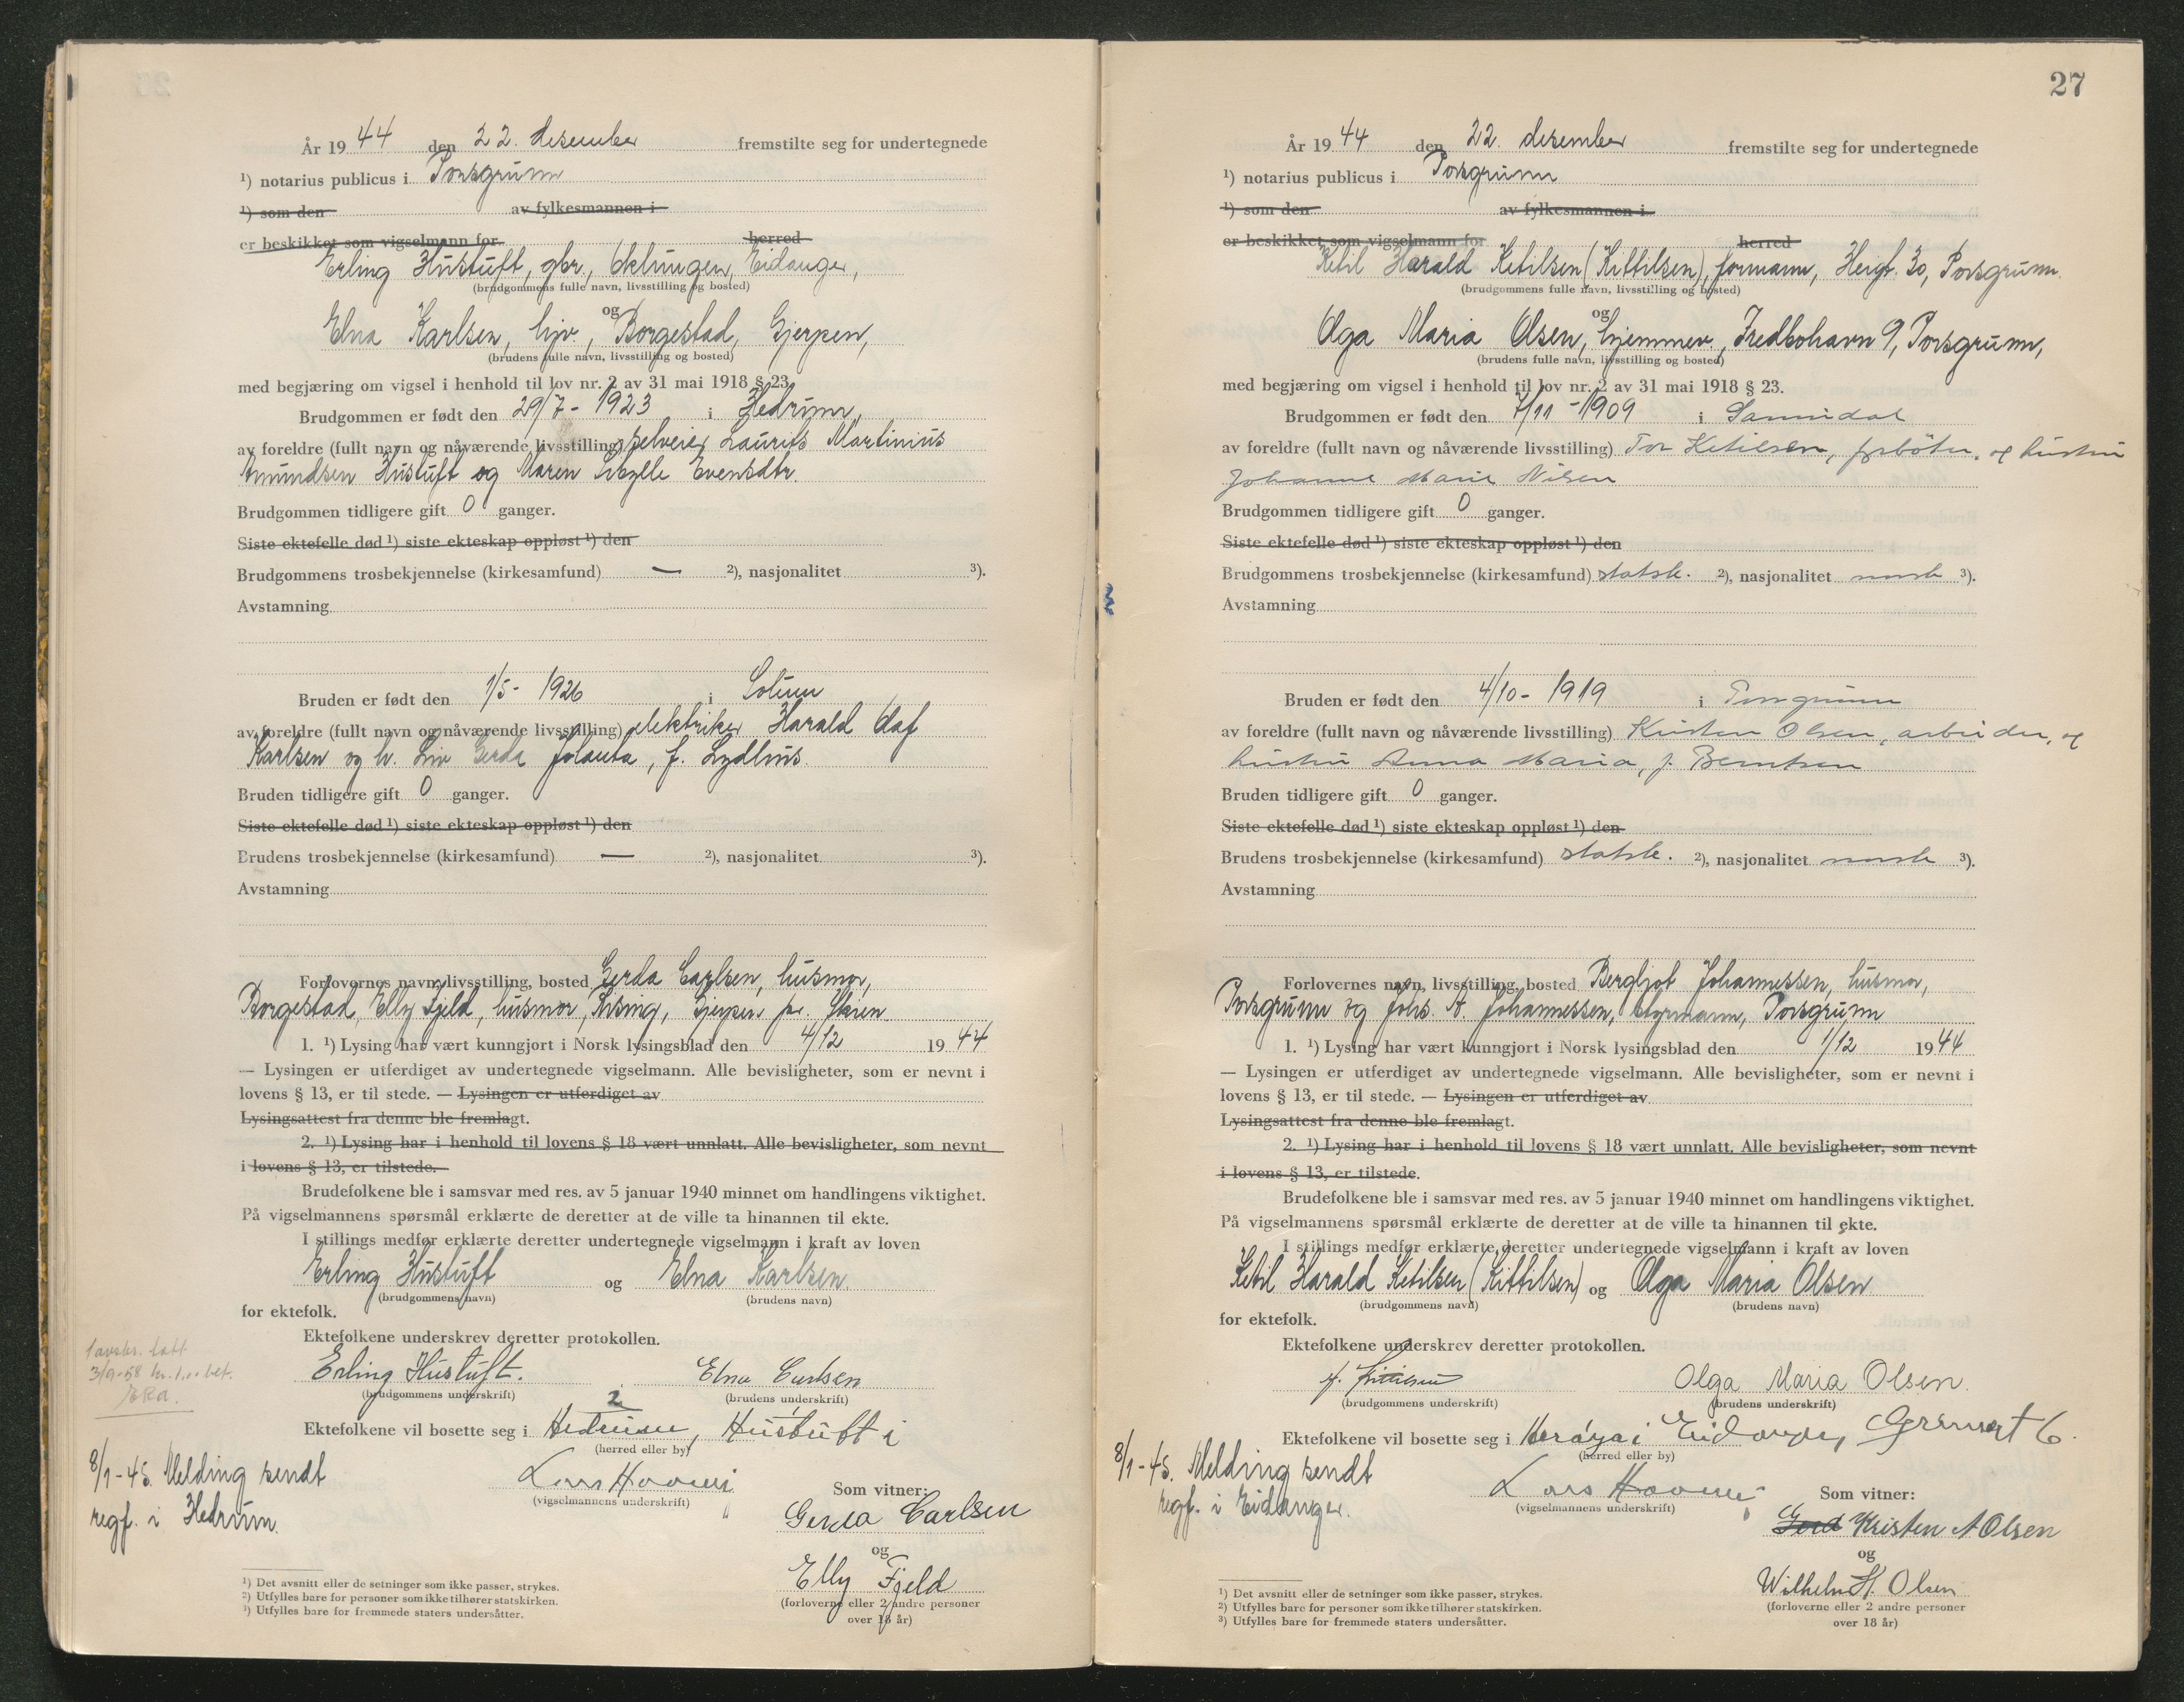 År 1944 den 22. desember fremstilte seg for undertegnede
¹) notarius publicus i Porsgrunn
¹) som den av fylkesmannen i
er beskikket som vigselmann for herred
Erling Hustuft, gbr., Oklungen, Eidanger,
(brudgommens fulle navn, livsstilling og bosted)
og
Elna Karlsen, hjv., Borgestad, Gjerpen,
(brudens fulle navn, livsstilling og bosted)
med begjæring om vigsel i henhold til lov nr. 2 av 31 mai 1918 § 23.
Brudgommen er født den 29/7 - 1923 i Hedrum,
av foreldre (fullt navn og nåværende livsstilling) selveier Laurits Martinius
Amundsen Hustuft og Maren Evensdtr.
Brudgommen tidligere gift 0 ganger.
Siste ektefelle død ¹) siste ekteskap oppløst ¹) den
Brudgommens trosbekjennelse (kirkesamfund) — ²), nasjonalitet ³).
Avstamning
Bruden er født den 1/5 - 1926 i Solum
av foreldre (fullt navn og nåværende livsstilling) elektriker Harald Olaf
Karlsen og h. Liv Gerda Jolanta, f. Lydhus.
Bruden tidligere gift 0 ganger.
Siste ektefelle død ¹) siste ekteskap oppløst ¹) den
Brudens trosbekjennelse (kirkesamfund) — ²), nasjonalitet ³).
Avstamning
Forlovernes navn, livsstilling, bosted Gerda Carlsen, husmor,
Borgestad, Elly Fjeld, husmor, Gjerpen pr. Skien
1. ¹) Lysing har vært kunngjort i Norsk lysingsblad den 4/12 1944
— Lysingen er utferdiget av undertegnede vigselmann. Alle bevisligheter, som er nevnt i
lovens § 13, er til stede. — Lysingen er utferdiget av
Lysingsattest fra denne ble fremlagt.
2. ¹) Lysing har i henhold til lovens § 18 vært unnlatt. Alle bevisligheter, som nevnt
i lovens § 13, er tilstede.
Brudefolkene ble i samsvar med res. av 5 januar 1940 minnet om handlingens viktighet.
På vigselmannens spørsmål erklærte de deretter at de ville ta hinannen til ekte.
I stillings medfør erklærte deretter undertegnede vigselmann i kraft av loven
Erling Hustuft og Elna Karlsen
(brudgommens navn) (brudens navn)
for ektefolk.
Ektefolkene underskrev deretter protokollen.
1 avskr. tatt
3/9-58 kr. 1.00 bet.
Erling Hustuft. Elna Carlsen
(brudgommens underskrift) (brudens underskrift)
2
Ektefolkene vil bosette seg i Hedrum, Hustuft i
(herred eller by)
8/1-45. Melding sendt
regf. i Hedrum.
(vigselmannens underskrift)
Som vitner:
Gerda Carlsen
og
Elly Fjeld
(forloverne eller 2 andre personer
over 18 år)
¹) Det avsnitt eller de setninger som ikke passer, strykes.
²) Utfylles bare for personer som ikke tilhører statskirken.
³) Utfylles bare for fremmede staters undersåtter.
27
År 1944 den 22. desember fremstilte seg for undertegnede
¹) notarius publicus i Porsgrunn
¹) som den av fylkesmannen i
er beskikket som vigselmann for herred
Ketil Harald Ketilsen (Kittilsen), formann, 30, Porsgrunn.
(brudgommens fulle navn, livsstilling og bosted)
og
Olga Maria Olsen, hjemmev., Fredbohavn 9, Porsgrunn,
(brudens fulle navn, livsstilling og bosted)
med begjæring om vigsel i henhold til lov nr. 2 av 31 mai 1918 § 23.
Brudgommen er født den 7/11 - 1909 i Sannidal
av foreldre (fullt navn og nåværende livsstilling) Tor Ketilsen, fyrbøter, og hustru
Johanne Marie Nilsen
Brudgommen tidligere gift 0 ganger.
Siste ektefelle død ¹) siste ekteskap oppløst ¹) den
Brudgommens trosbekjennelse (kirkesamfund) statsk. ²), nasjonalitet norsk ³).
Avstamning
Bruden er født den 4/10 - 1919 i Porsgrunn
av foreldre (fullt navn og nåværende livsstilling) Kristen Olsen, arbeider, og
hustru Anna Maria, f. Berntsen
Bruden tidligere gift 0 ganger.
Siste ektefelle død ¹) siste ekteskap oppløst ¹) den
Brudens trosbekjennelse (kirkesamfund) statsk. ²), nasjonalitet norsk ³).
Avstamning
Forlovernes navn, livsstilling, bosted Bergljot Johannessen, husmor,
Porsgrunn og Johs. A. Johannessen, styrmann, Porsgrunn
1. ¹) Lysing har vært kunngjort i Norsk lysingsblad den 1/12 1944
— Lysingen er utferdiget av undertegnede vigselmann. Alle bevisligheter, som er nevnt i
lovens § 13, er til stede. — Lysingen er utferdiget av
Lysingsattest fra denne ble fremlagt.
2. ¹) Lysing har i henhold til lovens § 18 vært unnlatt. Alle bevisligheter, som nevnt
i lovens § 13, er tilstede.
Brudefolkene ble i samsvar med res. av 5 januar 1940 minnet om handlingens viktighet.
På vigselmannens spørsmål erklærte de deretter at de ville ta hinannen til ekte.
I stillings medfør erklærte deretter undertegnede vigselmann i kraft av loven
Ketil Harald Ketilsen (Kittilsen) og Olga Maria Olsen
(brudgommens navn) (brudens navn)
for ektefolk.
Ektefolkene underskrev deretter protokollen.
Kittilsen Olga Maria Olsen.
(brudgommens underskrift) (brudens underskrift)
Ektefolkene vil bosette seg i Herøya i Eidanger, 6.
(herred eller by)
8/1-45. Melding sendt
regf. i Eidanger.
(vigselmannens underskrift)
Som vitner:
Kristen A Olsen
og
Wilhelm H. Olsen
(forloverne eller 2 andre personer
over 18 år)
¹) Det avsnitt eller de setninger som ikke passer, strykes.
²) Utfylles bare for personer som ikke tilhører statskirken.
³) Utfylles bare for fremmede staters undersåtter.